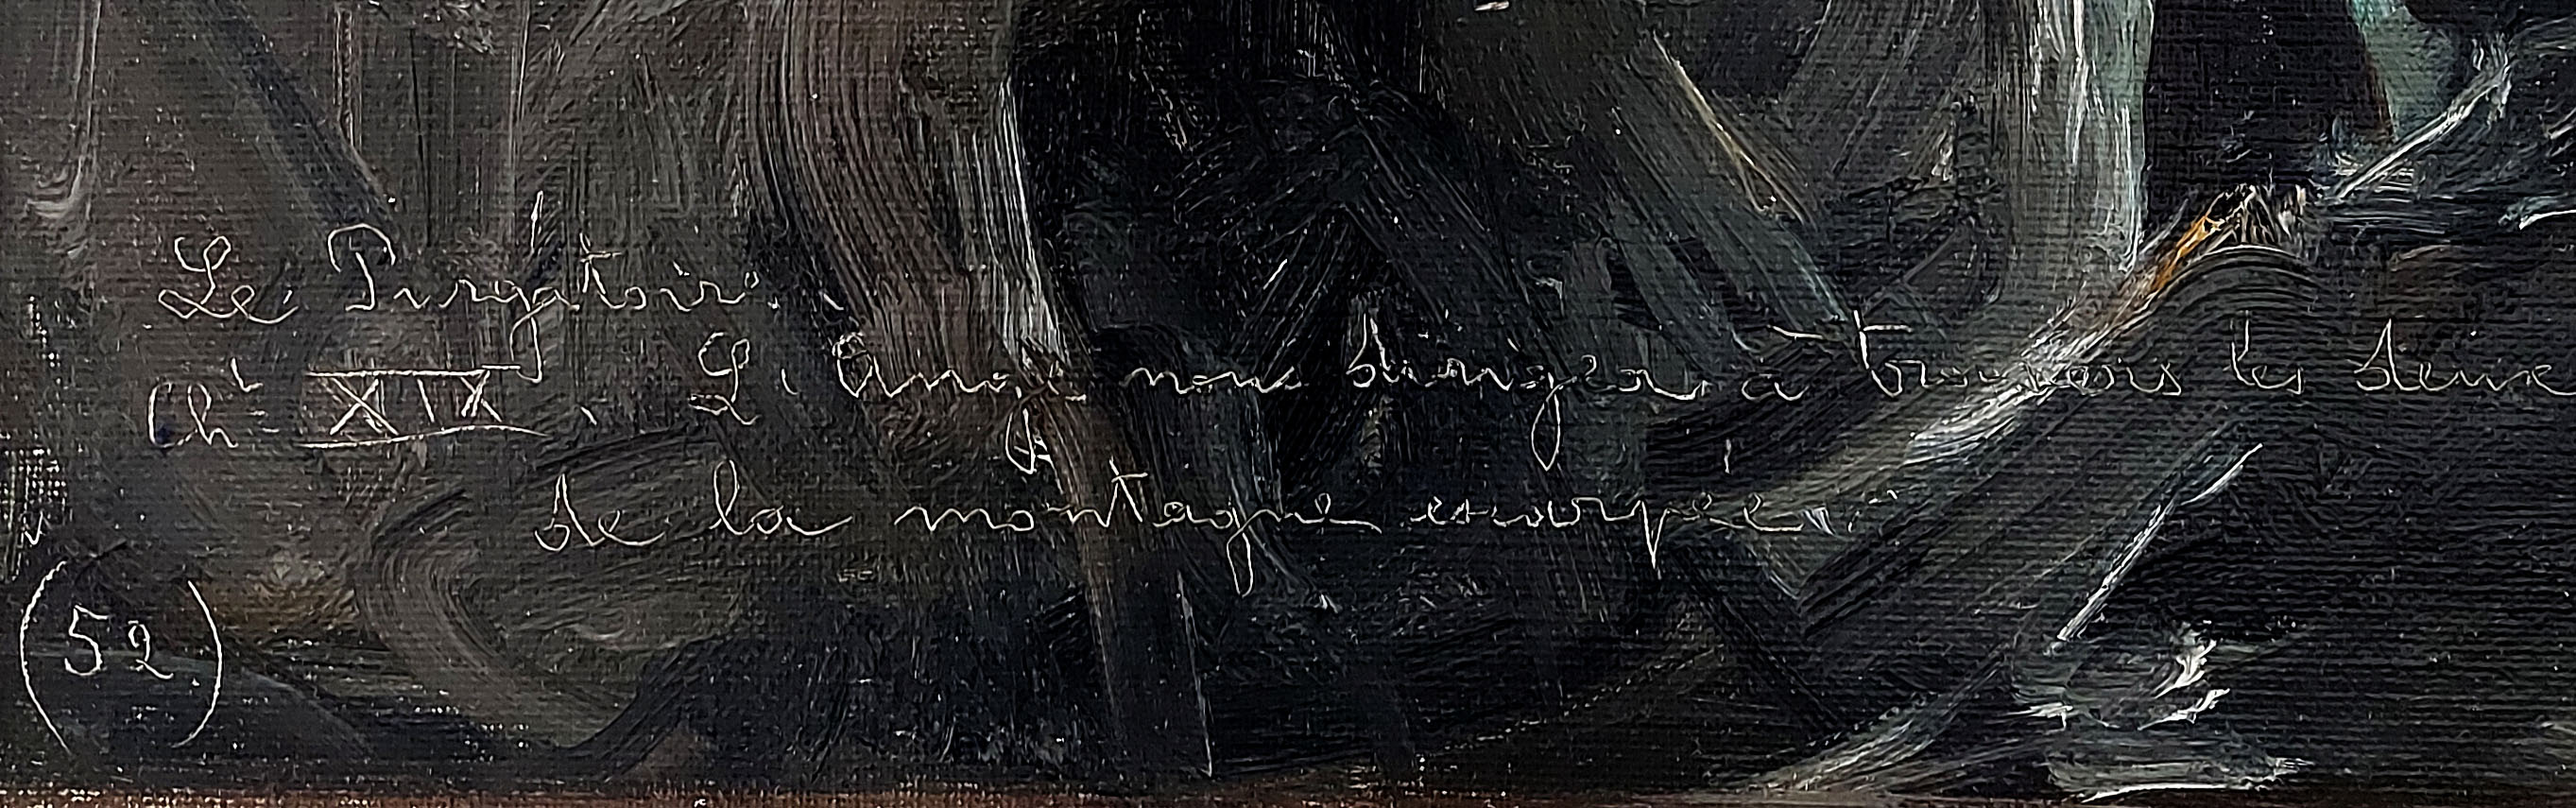 Le Purgatoire.
Cht XIX. L'Ange nous dirigea à travers les deux
de la montagne escarpée.
(52)